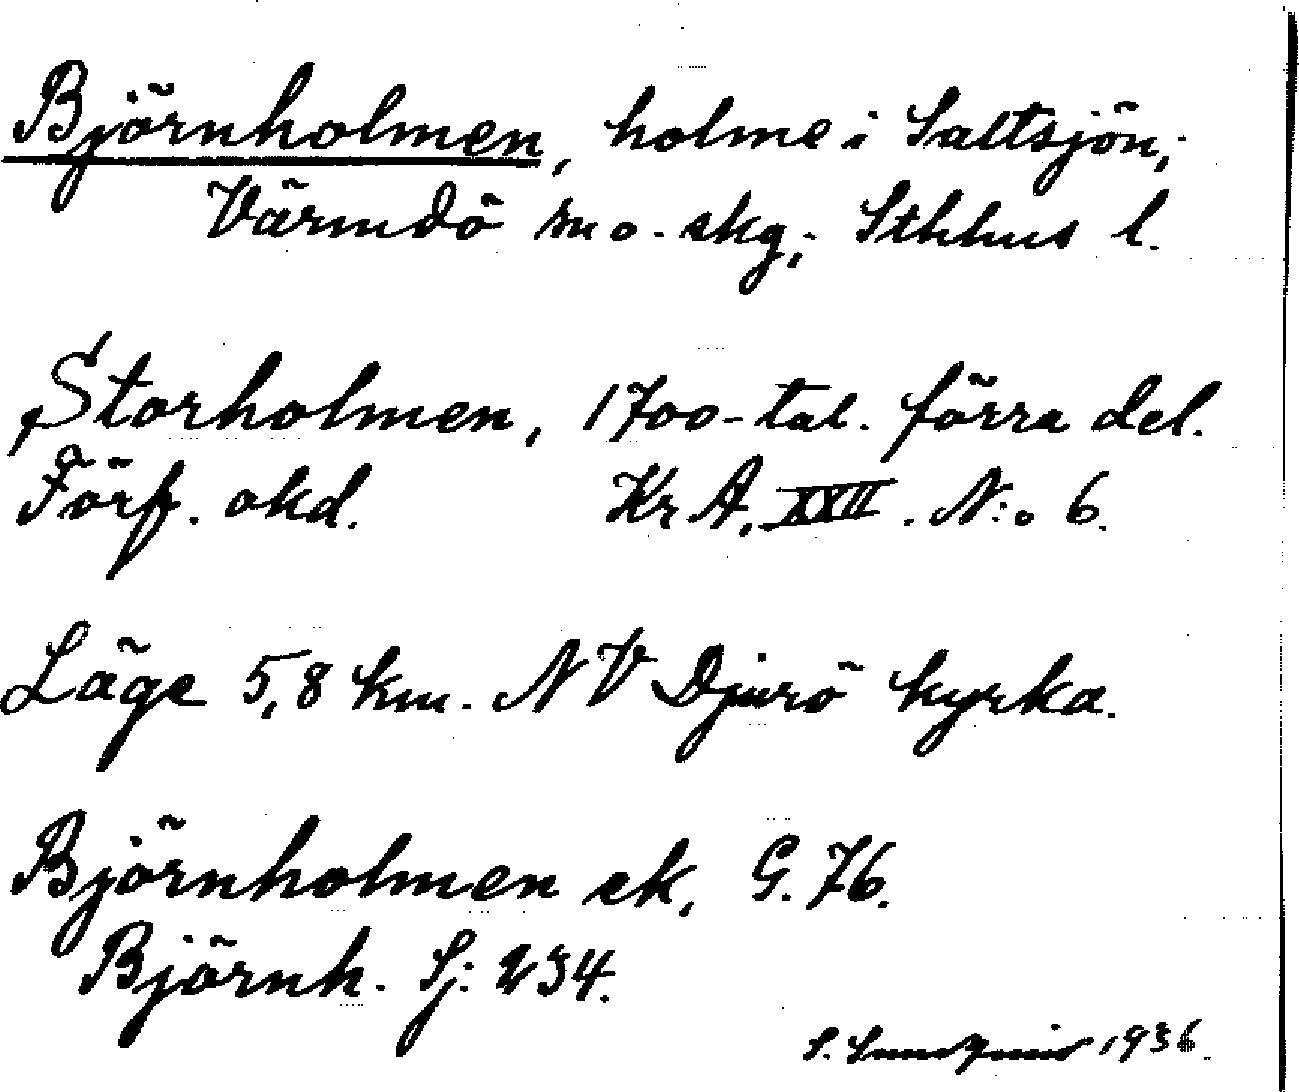 Björnholmen, holme i Saltsjön;
Värmdö sn o. skg; Sthlms l.
Storholmen, 1700-tal. förra del.
Förf. okd. Kr A. XXII. N:o 6.
Läge 5,8 km. NV Djurö kyrka.
Björnholmen ek, G. 76.
Björnh. Sj: 234.
S. 1936.